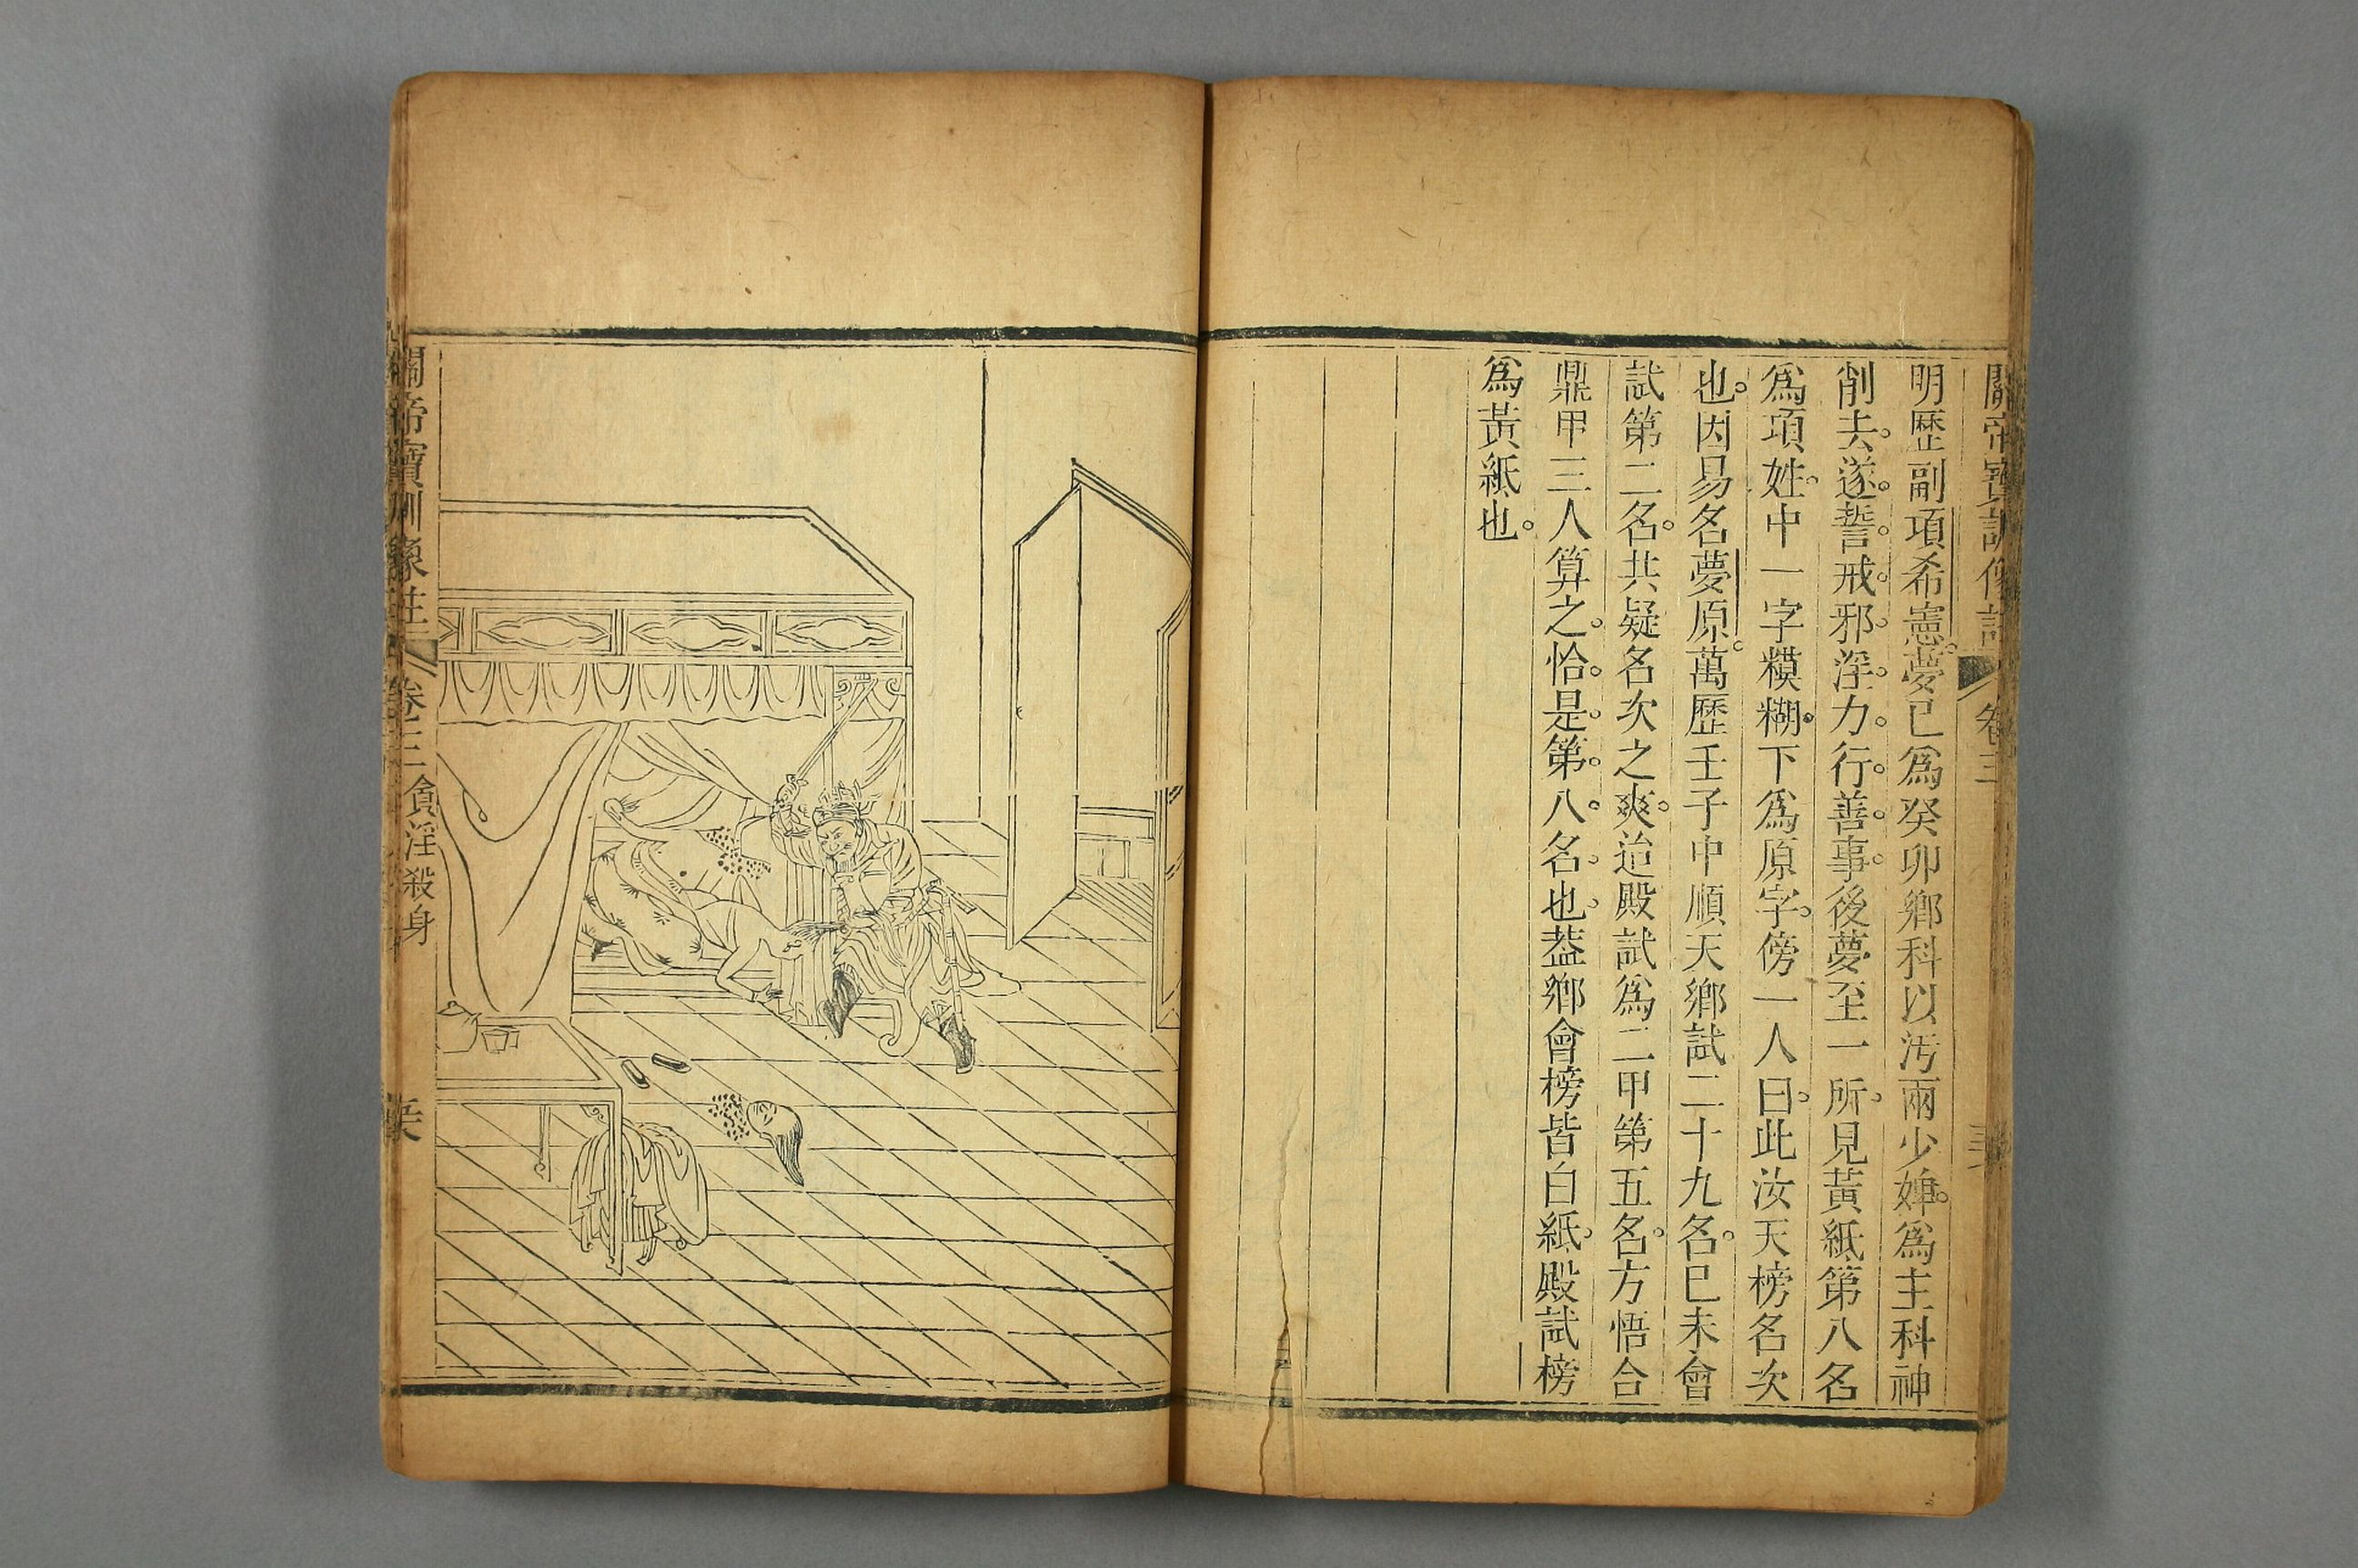 關帝寶訓像註 卷三
明歷副項希憲夢已爲癸卯鄉科以汚兩少婢爲主科神
削去遂誓戒邪淫力行善事後夢至一所見黃紙第八名
爲項姓中一字糢糊下爲原字傍一人曰此汝天榜名次
也因易名夢原萬歷壬子中順天鄉試二十九名已未會
試第二名共疑名次之爽迨殿試爲二甲第五名方悟合
鼎甲三人算之恰是第八名也葢鄉會榜皆白紙殿試榜
爲黃紙也
關帝寶訓像註 卷三 貪淫殺身